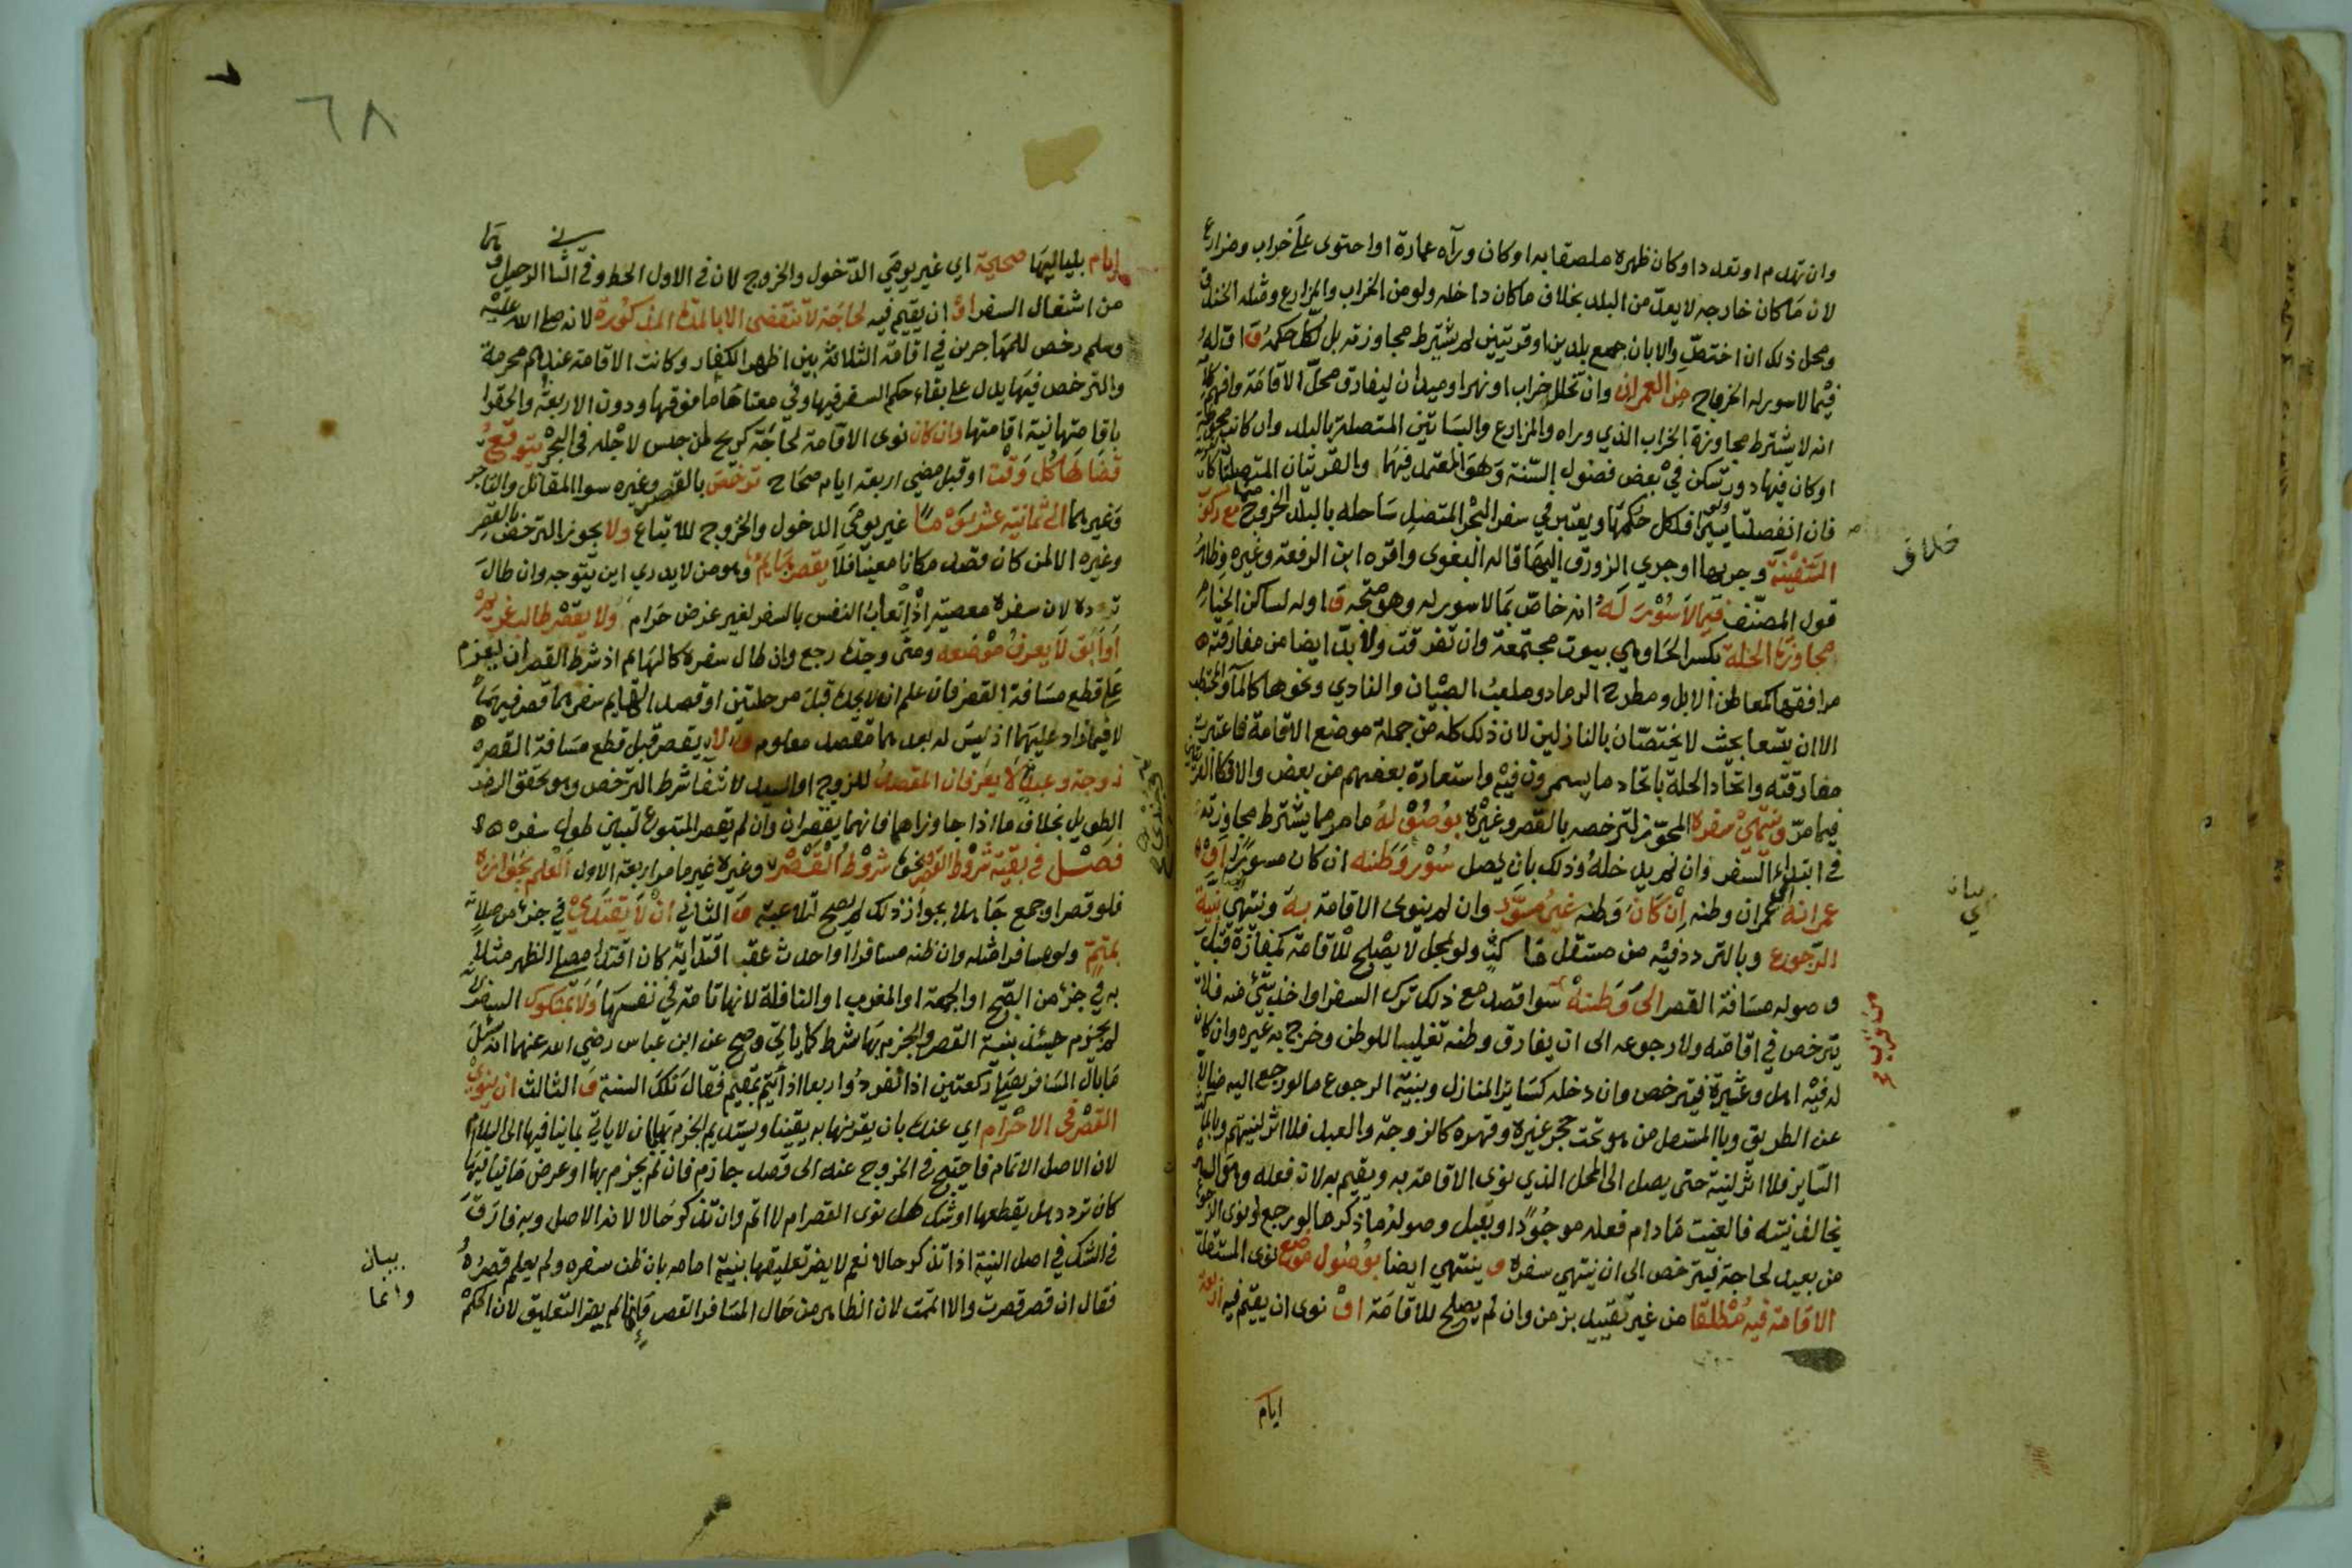 وان تهدم او تعدد او كان ظهره ملصقا به او كان ورآه عمارة او احتوى على خراب ومزارع
لان ما كان خارجه لا يعد من البلد بخلاف ما كان داخله ولو من الخراب والمزارع ومثله الخندق
ومحل ذلك ان اختص والا بان جمع بلدين او قريتين لم يشترط مجاوزته بل لكل حكمه و اوله
فيما لا سور له الخروج من العمران وان تخلل خراب او نهر او ميدان ليفارق محل الاقامة وافهم
انه لا يشترط مجاوزة الخراب الذي وراه والمزارع والبساتين المتصلة بالبلد وان كانت محوطة
او كان فيها دور تسكن في بعض فصول السنة وهو المعتمد فيها والقريتان المتصلتان
فان انفصلتا ولو يسيرا فلكل حكمها ويعتبر في سفر البحر المتصل ساحله بالبلد الخروج منها مع ركوب
السفينة وجريها او جري الزورق اليها قاله البغوى واقره ابن الرفعة وغيره وظاهر
قول المصنف فيما لا سور له انه خاص بما لا سور له وهو متجه و اوله لساكن الخيام
مجاوزة الحلة بكسر الحاء وهي بيوت مجتمعة وان تفرقت ولا بد ايضا من مفارقته
مرافقها كمعاطن الابل ومطرح الرماد وملعب الصبيان والنادي ونحوها كالمآء والمحتطب
الا ان يتسعا بحيث لا يختصان بالنازلين لان ذلك كله من جملة موضع الاقامة فاعتبرت
مفارقته واتحاد الحلة باتحاد ما يسمرون فيه واستعارة بعضهم من بعض والا فكالقريتين
فيما مر وينتهي سفره المجوز لترخصه بالقصر وغيره بوصوله ما مر مما يشترط مجاوزته
في ابتداء السفر وان لم يدخله وذلك بان يصل سور وطنه ان كان مسورا او
عمرانه اي عمران وطنه ان كان وطنه غير مسور وان لم ينوى الاقامة به وينتهي بنية
الرجوع وبالتردد فيه من مستقل ماكث ولو بمحل لا يصلح للاقامة كمفازة قبل
وصوله مسافة القصر الى وطنه سوا قصد مع ذلك ترك السفر او اخذ شيء منه فلا
يترخص في اقامته ولا رجوعه الى ان يفارق وطنه تغليبا للوطن وخرج به غيره وان كان
له فيه اهل وعشيرة فيترخص وان دخله كساير المنازل وبنية الرجوع ما لو رجع اليه ضالا
عن الطريق وبالمستقل من هو تحت حجر غيره وقهره كالزوجة والعبد فلا اثر لنيتهم وبالماكث
الساير فلا اثر لنيته حتى يصل الى المحل الذي نوى الاقامة به ويقيم به لان فعله وهو السير
يخالف نيته فالغيت ما دام فعله موجودا وبقبل وصوله ما ذكر ما لو رجع او نوى الرجوع
من بعيد لحاجة فيترخص الى ان ينتهي سفره و ينتهي ايضا بوصول موضع نوى المستقل
الاقامة فيه مطلقا من غير تقييد بزمن وان لم يصلح للاقامة او نوى ان يقيم فيه اربعة
ايام
بيان
اي
٦٨
ايام بلياليها صحيحة اي غير يومي الدخول والخروج لان في الاول الحط وفي الثاني الرحيل وهما
من اشغال السفر او ان يقيم فيه لحاجة لا تنقضي الا بالمدة المذكورة لانه صلى الله عليه
وسلم رخص للمهاجرين في اقامة الثلاثة بين اظهر الكفار وكانت الاقامة عندهم محرمة
والترخص فيها يدل على بقاء حكم السفر فيها وفي معناها ما فوقها ودون الاربعة والحقوا
باقامتها نية اقامتها وان كان نوى الاقامة لحاجة كريح لمن حبس لاجله في البحر يتوقع
قضاها كل وقت او قبل مضي اربعة ايام صحاح ترخص بالقصر وغيره سوا المقاتل والتاجر
وغيرهما الى ثمانية عشر يوما غير يومي الدخول والخروج للاتباع ولا يجوز الترخص بالقصر
وغيره الا لمن كان قصد مكانا معينا فلا يقصر هايم وهو من لا يدري اين يتوجه وان طال
تردده لان سفره معصية اذ اتعاب النفس بالسفر لغير غرض حرام ولا يقصر طالب غريم
او ابق لا يعرف موضعه ومتى وجده رجع وان طال سفره كالهايم اذ شرط القصر ان يعزم
على قطع مسافة القصر فان علم انه لا يجده قبل مرحلتين او قصد الهايم سفرهما قصر فيهما
لا فيما زاد عليهما اذ ليس له بعدهما مقصد معلوم و لا يقصر قبل قطع مسافة القصر
زوجة وعبد لا يعرفان المقصد للزوج او السيد لانتفا شرط الترخص وهو تحقق السفر
الطويل بخلاف ما اذا جاوزاها فانهما يقصران وان لم يقصر المتبوع لتبين طول سفره
فصل في بقية شروط القصر ونحوه شروط القصر وغيره غير ما مر اربعة الاول العلم بجوازه
فلو قصر او جمع جاهلا بجواز ذلك لم يصح لتلاعبه و الثاني ان لا يقتدي في جزء من صلاته
بمتم ولو مسافرا مثله وان ظنه مسافرا واحدث عقب اقتدايه كان اقتدا مصلى الظهر مثلا
به في جزء من الصبح او الجمعة او المغرب او النافلة لانها تامة في نفسها ولا بمشكوك السفر لانه
لم يجزم حينئذ بنية القصر والجزم بها شرط كما ياتي وصح عن ابن عباس رضي الله عنهما انه سئل
ما بال المسافر يصلي ركعتين اذا انفرد واربعا اذا ائتم بمقيم فقال تلك السنة و الثالث ان ينوي
القصر في الاحرام اي عنده بان يقرنها به يقينا ويستديم الجزم بها بان لا ياتي بما ينافيها الى السلام
لان الاصل الاتمام فاحتيج في الخروج عنه الى قصد جازم فان لم يجزم بها او عرض ما ينافيها
كان تردد هل يقطعها او شك هل نوى القصر ام لا اتم وان تذكر حالا لانه الاصل وبه فارق
في الشك في اصل النية اذا تذكر حالا نعم لا يضر تعليقها بنية امامه بان ظن سفره ولم يعلم قصره
فقال ان قصر قصرت والا اتممت لان الظاهر من حال المسافر القصر وانما لم يضر التعليق لان الحكم
بيان
وانما